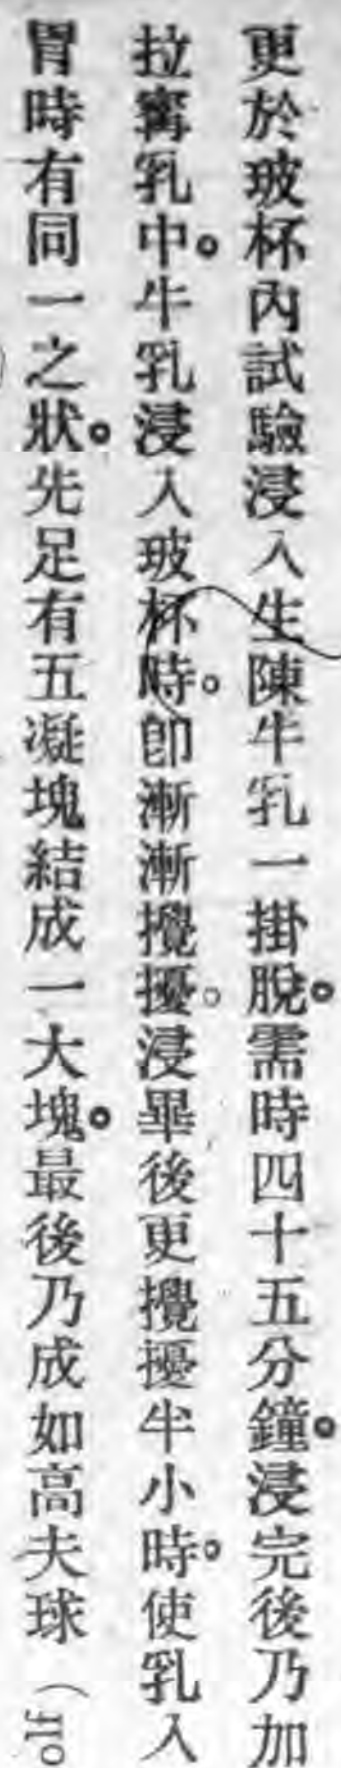 更於玻杯內試驗浸入生陳牛乳一掛脫。需時四十五分鐘。浸完後乃加
拉寗乳中。牛乳浸入玻杯時。卽漸漸攪擾。浸畢後更攪擾半小時。使乳入
胃時有同一之狀。先足有五凝塊結成一大塊。最後乃成如高夫球（